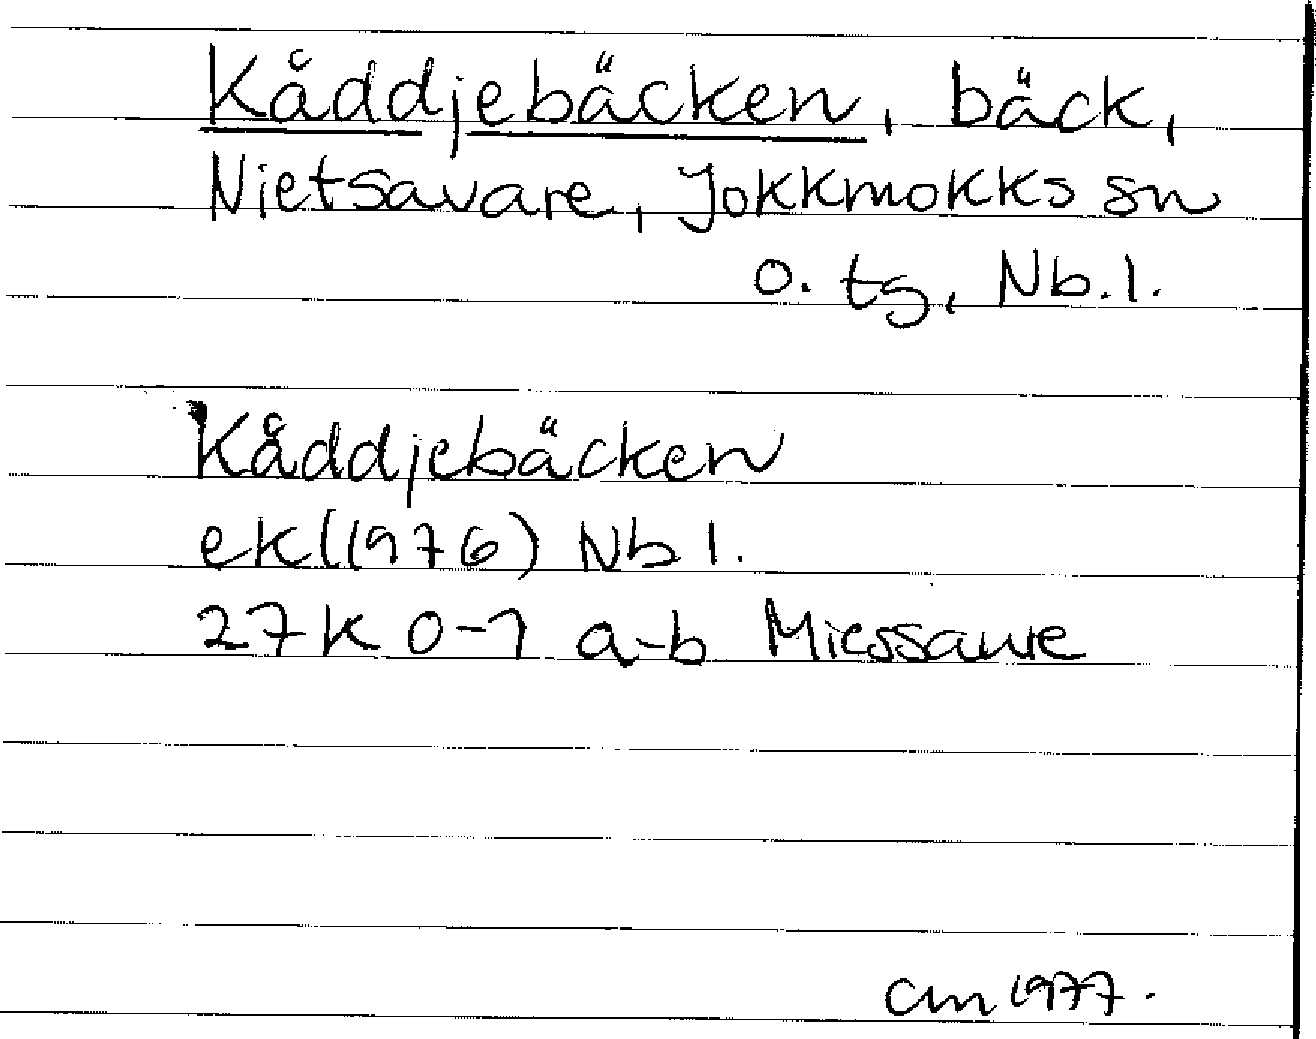 Kåddjebäcken, bäck,
Nietsavare, Jokkmokks sn
o. tg, Nb.l.
Kåddjebäcken
ek (1976) Nb l.
27K 0-1 a-b Miessaure
CM 1977.